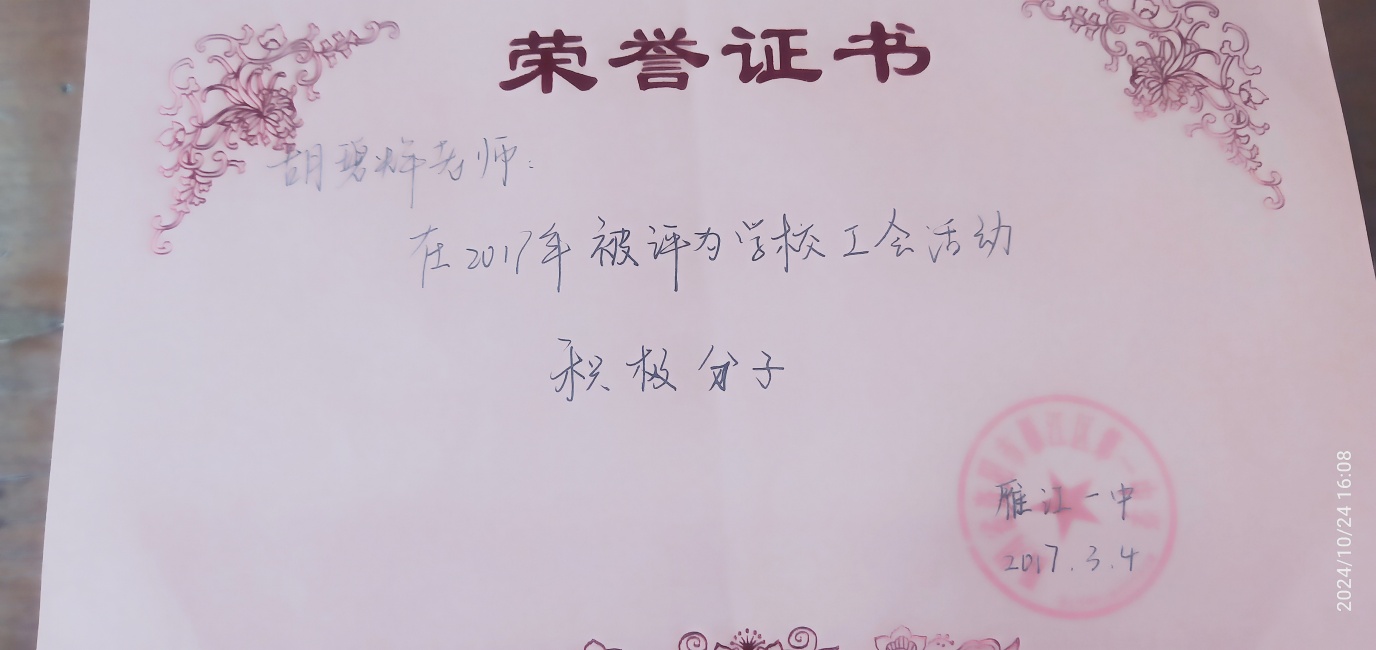 荣誉证书
胡碧辉老师:
在2017年被评为学校工会活动
积极分子
雁江一中
2017.3.4
2024/10/24 16:08